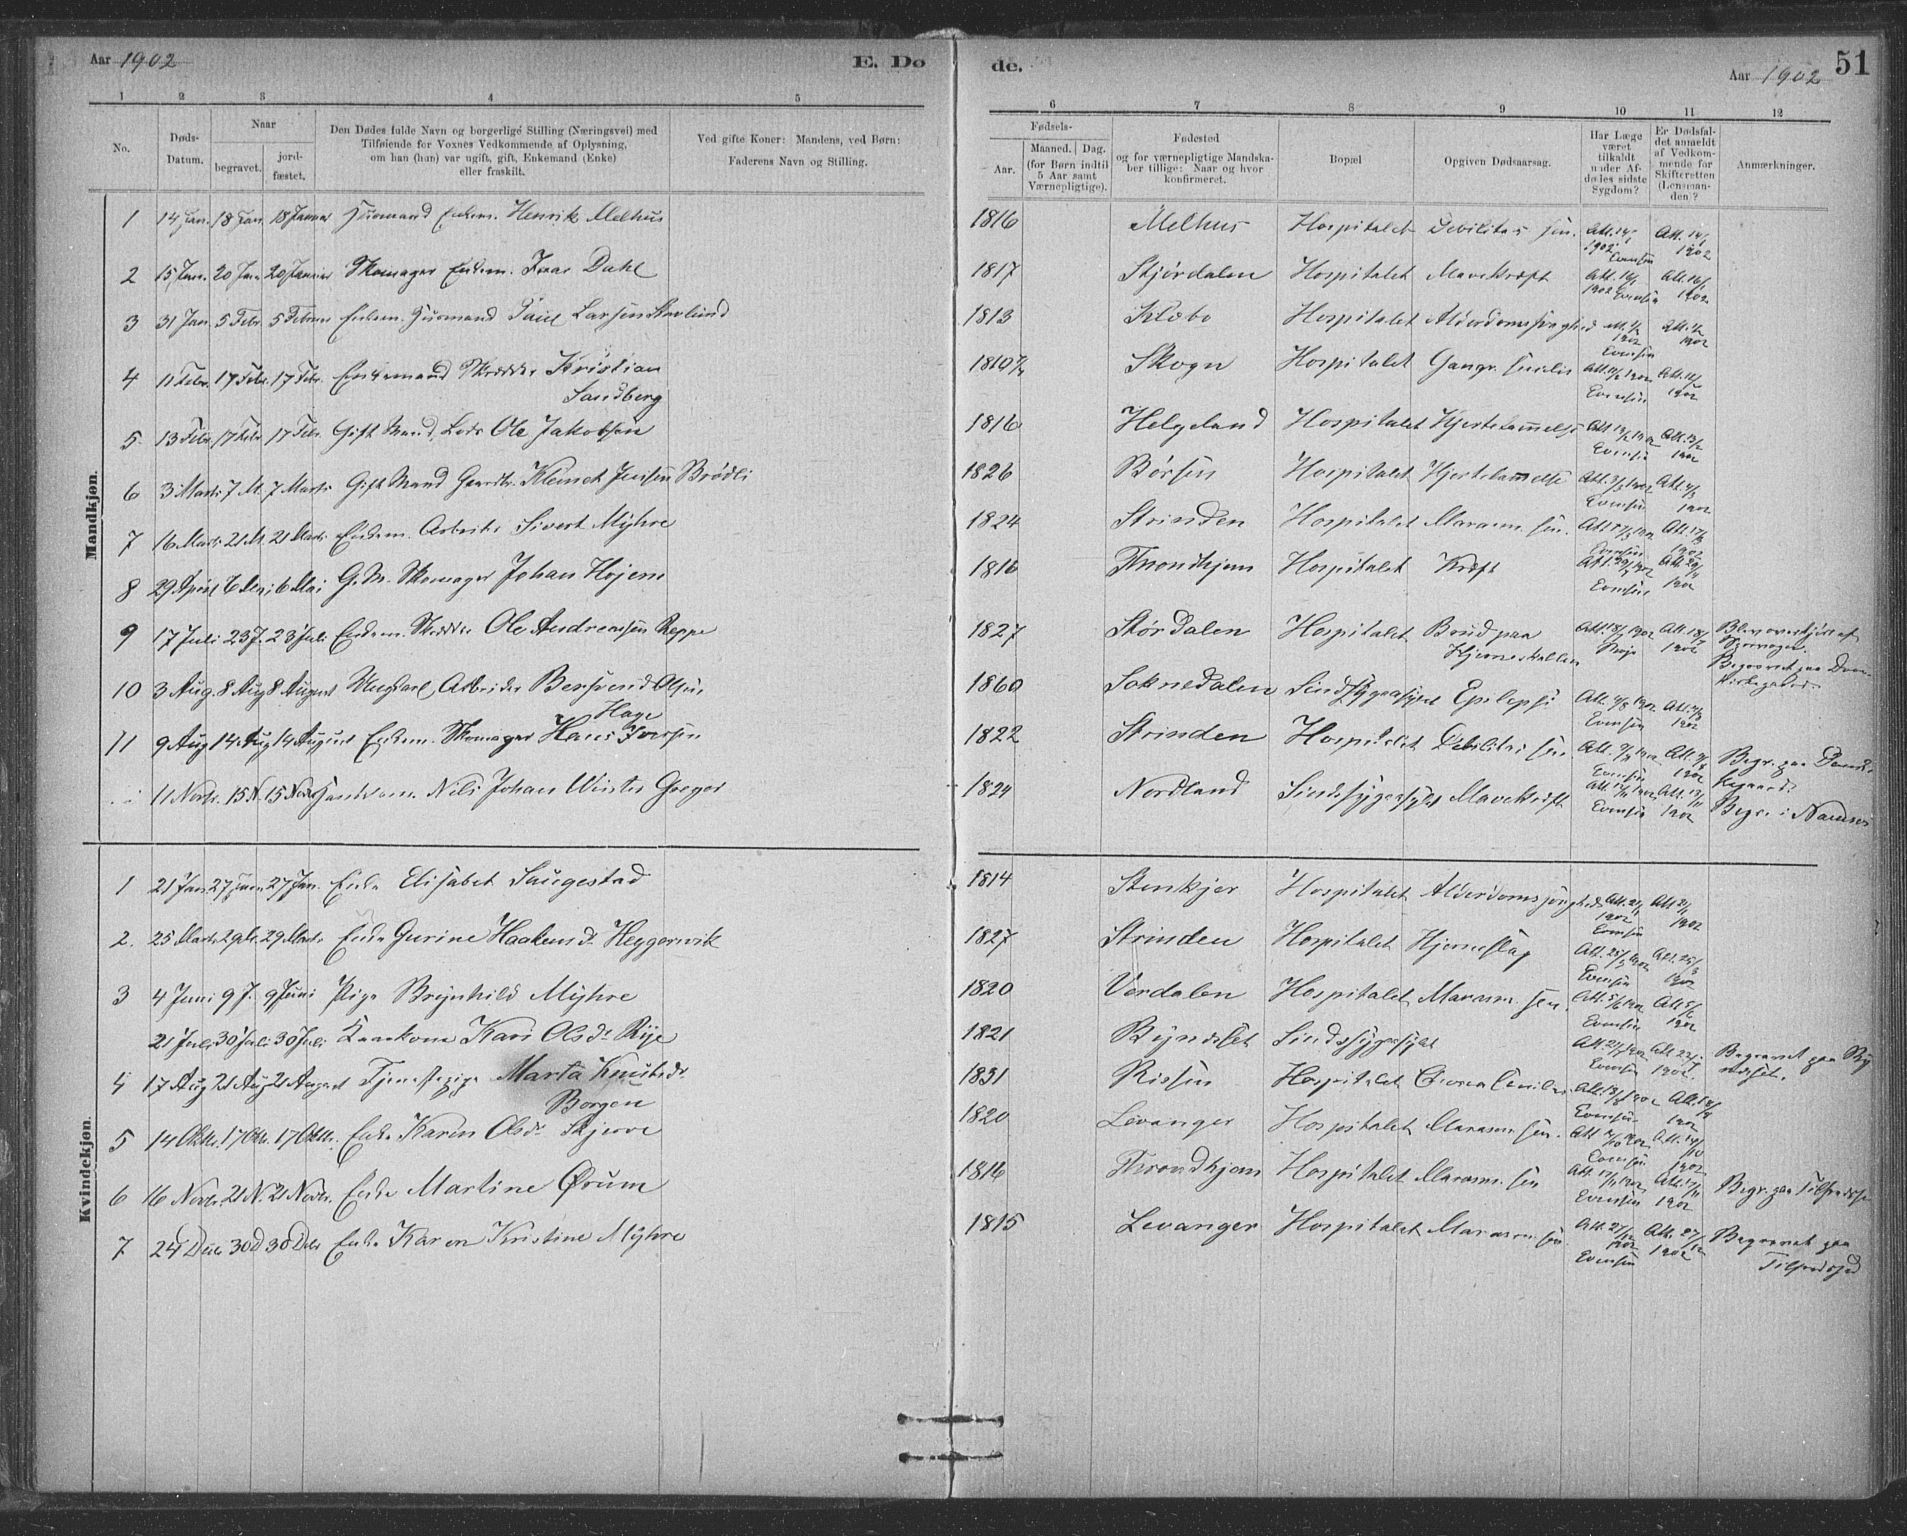 Aar 1902
E. Dø
de.
Aar 1902
51
1 2 3 4 5 6 7 8 9 10 11 12
No.
Døds-Datum.
Naar
begravet.
jord-fæstet.
Den Dødes fulde Navn og borgerlige Stilling (Næringsvei) med
Tilføiende for Voxnes Vedkommende af Oplysning,
om han (hun) var ugift, gift, Enkemand (Enke)
eller fraskilt.
Ved gifte Koner: Mandens, ved Børn:
Faderens Navn og Stilling.
Fødsels-
Aar.
Maaned. Dag.
(for Børn indtil
5 Aar samt
Værnepligtige).
Fødested
og for værnepligtige Mandska-
ber tillige: Naar og hvor
konfirmeret.
Bopæl
Opgiven Dødsaarsag.
Har Læge
været
tilkaldt
under Af-
dødes sidste
Sygdom?
Er Dødsfal-
det anmeldt
af Vedkom-
mende for
Skifteretten
(Lensman-
den)?
Anmærkninger.
Mandkjøn.
1 14 Jan. 18 Jan. 18 Januar Husmand Enkem. Henrik Melhus 1816 Melhus Hospitalet Debilitas sen. Att. 14/1 1902 Evensen Att. 14/1 1902
2 15 Jan. 20 Jan 20 Januar Skomager Enkem. Ivar Dahl 1817 Stjørdalen Hospitalet Mavekræft Att. 16/1 1902 Evensen Att. 16/1 1902
3 31 Jan. 5 Febr. 5 Februar Enkem. Husmand Paul Larsen 1813 Klæbo Hospitalet Alderdomssvaghed 1902 Evensen 1902
4 11 Febr. 17 Febr. 17 Febr. Enkemand Skrædder Kristian
Sandberg 1819 Skogn Hospitalet Gangr. senilis 1902 Evensen 1902
5 13 Febr. 17 Febr. 17 Febr. Gift Mand, Lods Ole Jakobsen 1816 Helgeland Hospitalet Hjertelammelse Att. 13/2 1902 Evensen Att. 13/2 1902
6 3 Marts 7 M. 7 Marts Gift Mand Gaardbr. Klemet Jensen Brødli 1826 Børsen Hospitalet Hjertelammelse Att. 3/3 1902 Evensen Att. 4/3 1902
7 16 Marts 21 M. 21 Marts Enkem. Arbeider Sivert Myhre 1824 Strinden Hospitalet Marasm. sen. Att. 17/3 1902 Evensen Att. 17/3 1902
8 29 April 6 Mai 6 Mai G. M. Skomager Johan Højem 1816 Throndhjem Hospitalet Kræft Att. 29/4 1902 Evensen Att. 29/4 1902
9 17 Juli 23 J. 23 Juli Enkem. Skrædder Ole Andreassen Reppe 1827 Størdalen Hospitalet Brud paa
Hjerneskallen Att. 18/7 1902 Att. 18/7 1902 Blev overkjørt af
Sporvogn.
Begravet paa Dom-
kirkegaard.
10 3 Aug. 8 Aug 8 August Ungkarl, Arbeider Bersvend Olsen
Hage 1860 Soknedalen Sindssygeasylet Epilepsi Att. 4/8 1902 Evensen Att. 4/8 1902
11 9 Aug 14 Aug 14 August Enkem. Skomager Hans Iversen 1822 Strinden Hospitalet Debilitas sen. Att. 9/8 1902 Evensen Att. 9/8 1902 Begr. paa Domk.
11 Novbr. 15 N. 15 Novbr Nils Johan Winter Greger 1824 Nordland Sindssygeasylet Mavekræft Att. 12/11 1902 Evensen Att. 12/11 1902 Begr. i Namsos
Kvindekjøn.
1 21 Jan 27 Jan. 27 Jan. Enke Elisabet Saugestad 1814 Stenkjer Hospitalet Alderdomssvaghed Att. 21/1 1902 Evensen Att. 21/1 1902
2. 25 Marts 29 M. 29 Marts Enke Gurine Haakensd. Heggervik 1827 Strinden Hospitalet Hjerneslag Att. 25/3 1902 Evensen Att. 25/3 1902
3 4 Juni 9 J. 9 Juni Pige Brynhild Myhre 1820 Verdalen Hospitalet Marasm. sen. Att. 5/6 1902 Evensen Att. 5/6 1902
21 Juli 30 Juli 30 Juli Kaarkone Kari Olsd. Rye 1821 Byneset Sindssygeasylet Att. 21/7 1902 Evensen Att. 22/7 1902. Begravet paa By-
neset.
4 17 Aug 21 Aug 21 August Tjenestepige Marta Knutsd.
Borgen 1831 Rissen Hospitalet Att. 18/8 1902 Evensen Att. 18/8 1902
5 14 Oktbr. 17 Oktbr. 17 Oktbr. Enke Karen Olsd. Skjerve 1820 Levanger Hospitalet Marasm. sen. Att. 14/10 1902 Evensen Att. 14/10 1902
6 16 Novbr. 21 N. 21 Novbr. Enke Martine Ørum 1816 Throndhjem Hospitalet Marasm. sen Att. 17/11 1902 Evensen Att. 17/11 1902 Begr. paa Tilfredshed
7 24 Decbr 30 D 30 Decbr Enke Karen Kristine Myhre 1815 Levanger Hospitalet Marasm. sen Att. 27/12 1902 Evensen Att. 27/12 1902 Begravet paa
Tilfredshed